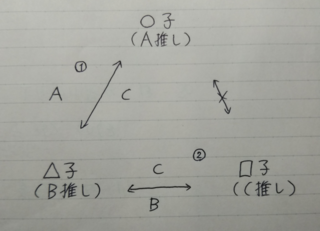 〇子
(A推し)
①
A
C
②
C
△子
(B推し)
B
□子
(C推し)